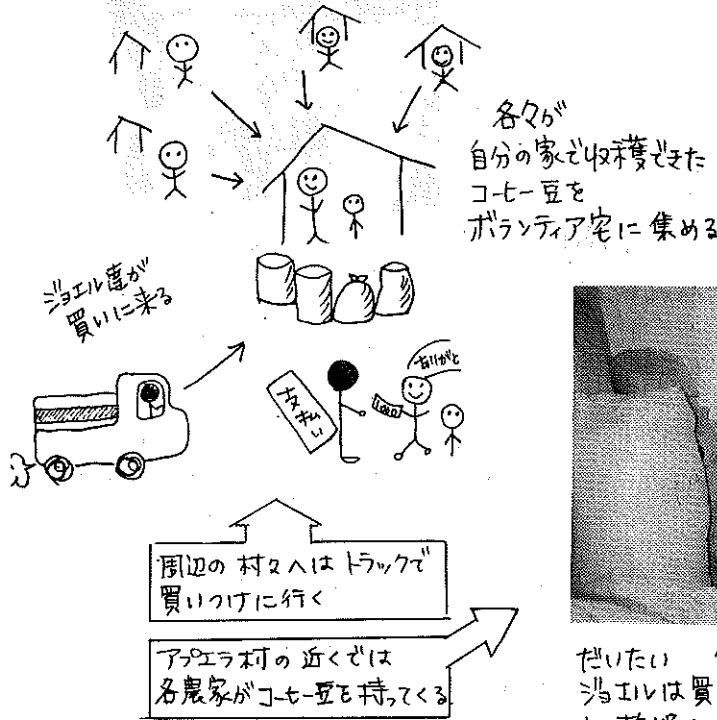 各々が
自分の家で収穫できた
コーヒー豆を
ボランティア宅に集める
ジョエル達が
買いに来る
支払い
ありがと
1000
周辺の村々へはトラックで
買いつけに行く
アプエラ村の近くでは
各農家がコーヒー豆を持ってくる
だいたい
ジョエルは買